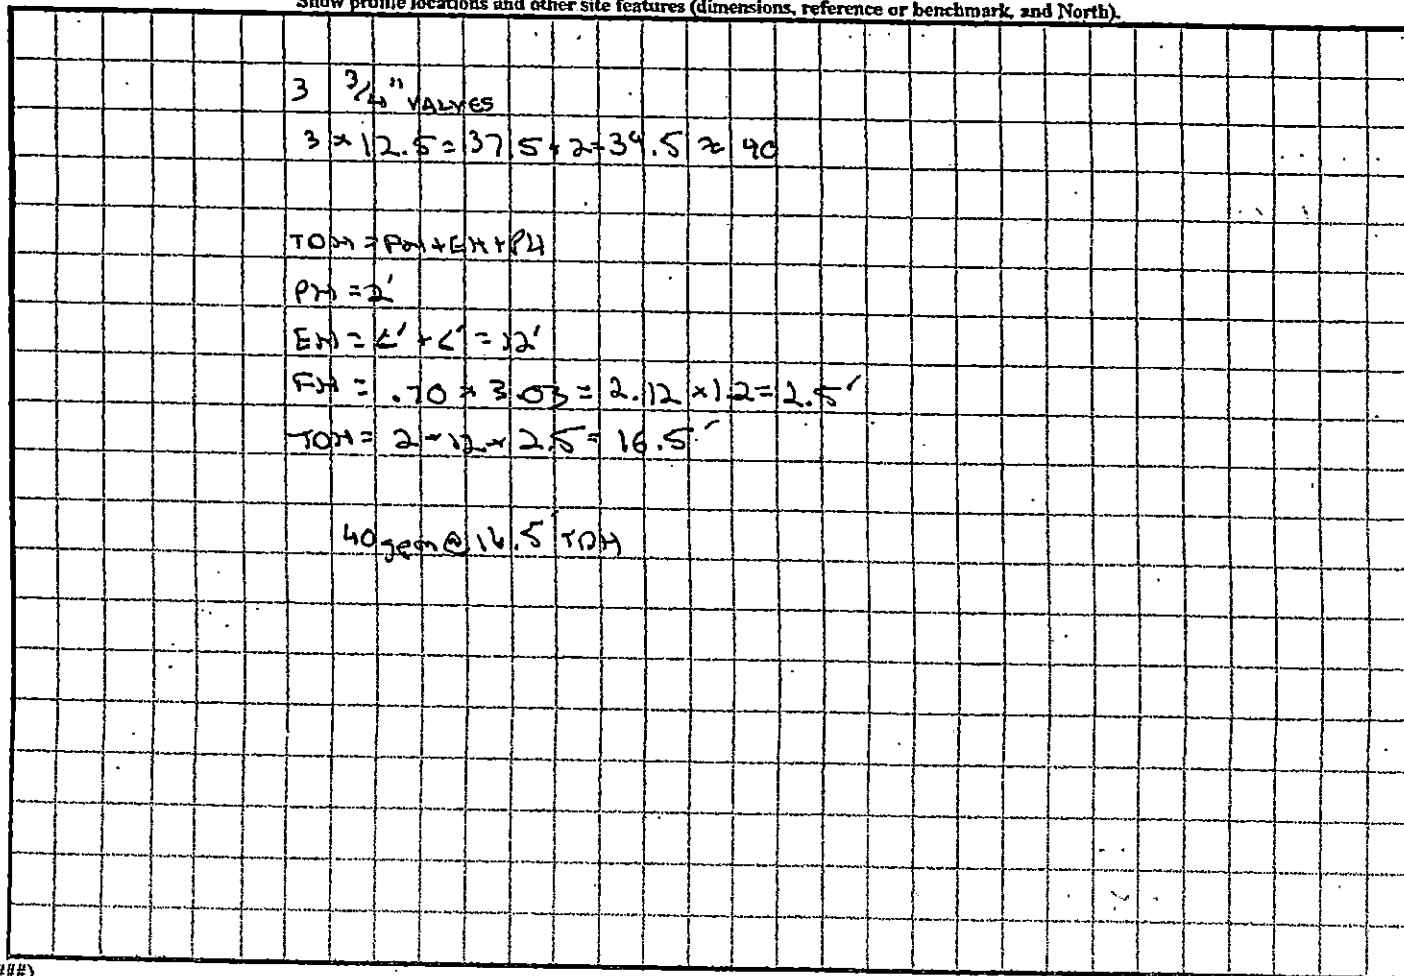 Show profile locations and other site features (dimensions, reference or benchmark, and North).
3 3/4" VALVES
3 × 12.5 = 37.5 + 2 = 39.5 ≈ 40
TDH = FH + EH + PH
PH = 2'
EH = 6' + 6' = 12'
FH = .70 × 3.03 = 2.12 × 1.2 = 2.5'
TDH = 2 + 12 + 2.5 = 16.5'
40 gpm @ 16.5' TDH
###)